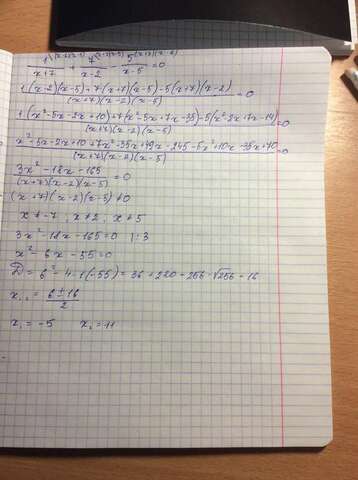 1/(x+7) + 7/(x-2) - 5/(x-5) = 0
(1(x-2)(x-5)+7(x+7)(x-5)-5(x+7)(x-2))/((x+7)(x-2)(x-5)) = 0
(1(x²-5x-2x+10)+7(x²-5x+7x-35)-5(x²-2x+7x-14))/((x+7)(x-2)(x-5)) = 0
(x²-5x-2x+10+7x²-35x+49x-245-5x²+10x-35x+70)/((x+7)(x-2)(x-5)) = 0
(3x²-18x-165)/((x+7)(x-2)(x-5)) = 0
(x+7)(x-2)(x-5)≠0
x≠-7; x≠2; x≠5
3x²-18x-165=0 |:3
x²-6x-55=0
D=6²-4·1(-55)=36+220=256=√256=16
x₁,₂ = (6±16)/2
x₁=-5 x₂=11